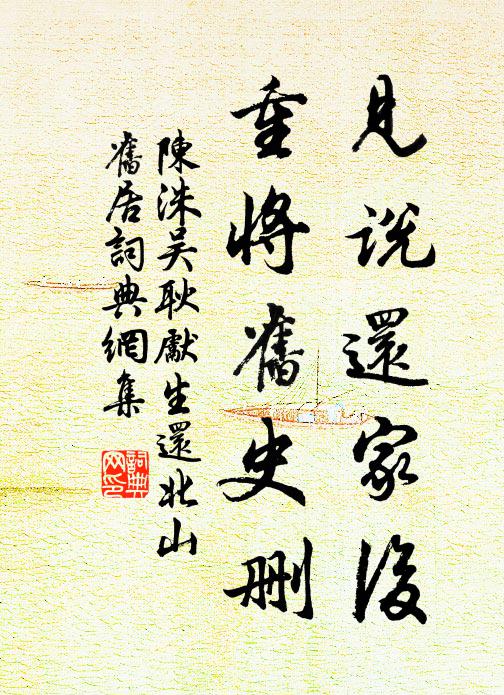 見說還家後
重將舊史刪
陳洙吳耿獻生還北山
舊居詞典網集
詞典
网印